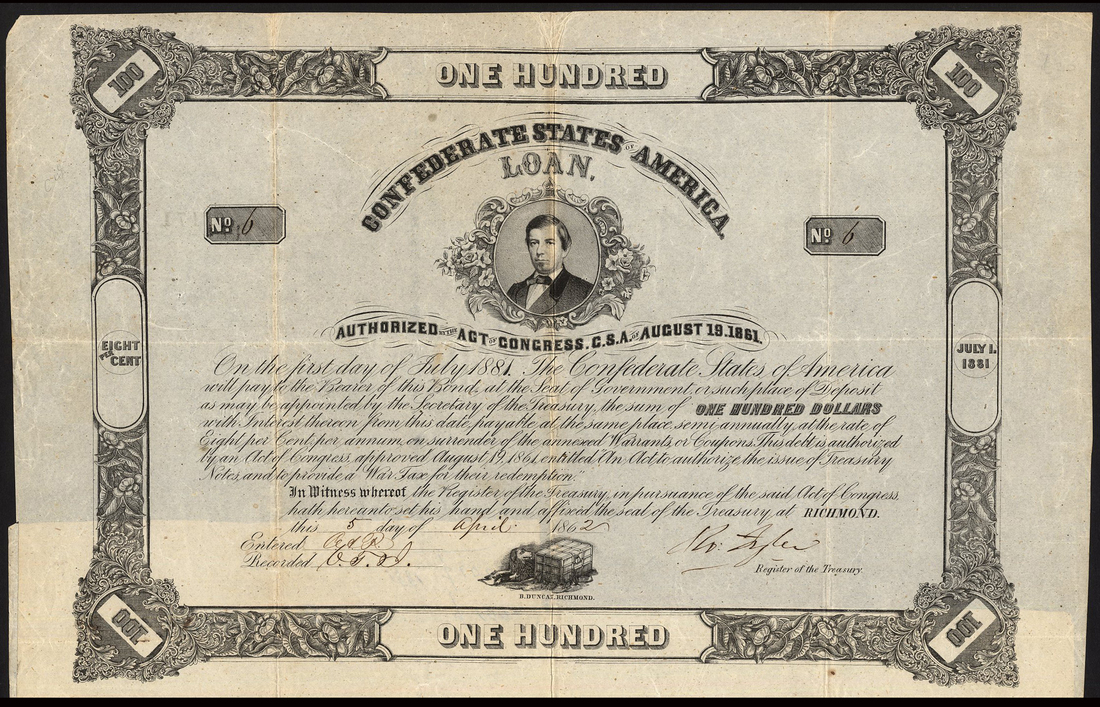 100
ONE HUNDRED
100
CONFEDERATE STATES OF AMERICA
LOAN.
No. 6
No. 6
AUTHORIZED BY THE ACT OF CONGRESS. C.S.A. OF AUGUST 19.1861.
EIGHT PER CENT
JULY 1. 1881
On the first day of July 1881. The Confederate States of America
will pay to the Bearer of this Bond, at the Seat of Government, or such place of Deposit
as may be appointed by the Secretary of the Treasury, the sum of ONE HUNDRED DOLLARS
with Interest thereon from this date, payable at the same place, semi annually, at the rate of
Eight per Cent, per annum, on surrender of the annexed Warrants, or Coupons. This debt is authorized
by an Act of Congress, approved August 19, 1861, entitled "An Act, to authorize the issue of Treasury
Notes, and to provide a War Tax for their redemption."
In Witness whereof the Register of the Treasury, in pursuance of the said Act of Congress
hath hereunto set his hand and affixed the seal of the Treasury, at RICHMOND.
this 5 day of April 1862
Entered
Recorded
Register of the Treasury.
B. DUNCAN, RICHMOND.
100
ONE HUNDRED
100